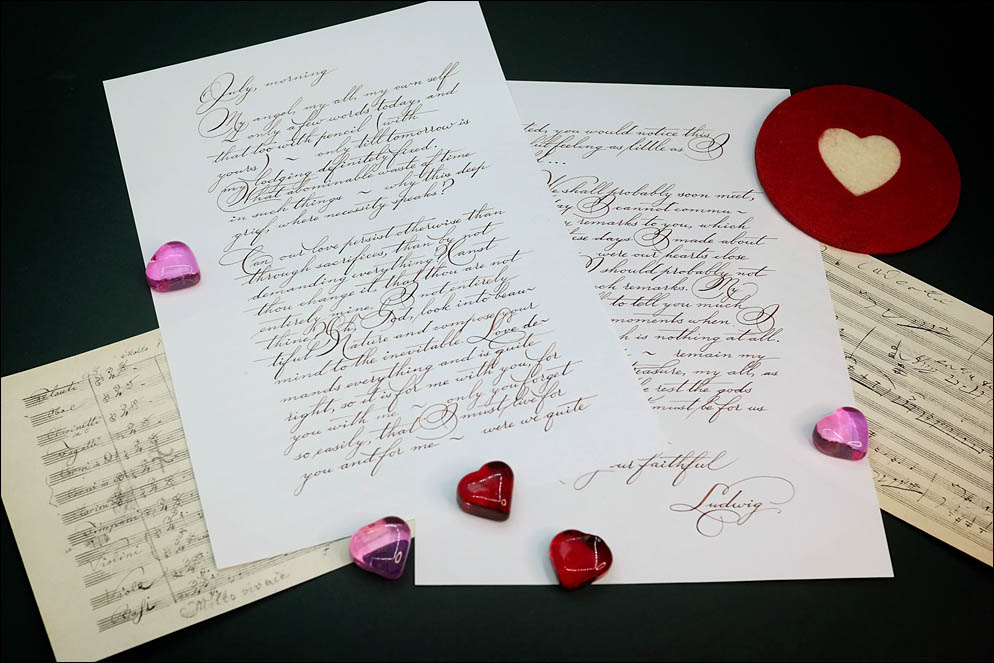 July, morning
My angel, my all, my own self
~ only a few words today, and
that too with pencil (with
yours) ~ only till tomorrow is
my lodging definitely fixed.
What abominable waste of time
in such things ~ why this deep
grief, where necessity speaks?
Can our love persist otherwise than
through sacrifices, than by not
demanding everything? Canst
thou change it, that thou are not
entirely mine, I not entirely
thine? Oh, God, look into beau-
tiful Nature and compose your
mind to the inevitable. Love de-
mands everything and is quite
right, so it is for me with you, for
you with me ~ only you forget
so easily, that I must live for
you and for me ~ were we quite
ted, you would notice this
feeling as little as I
...
We shall probably soon meet,
day I cannot commu~
remarks to you, which
these days I made about
were our hearts close
I should probably not
such remarks. My
to tell you much
moments when I
is nothing at all.
~ remain my
treasure, my all, as
the rest the gods
must be for us
faithful
Ludwig
Flauti
Oboi
Clarinetti
Fagotti
Corni in D
Timpani
Violini
Viola
Bassi
Molto vivace